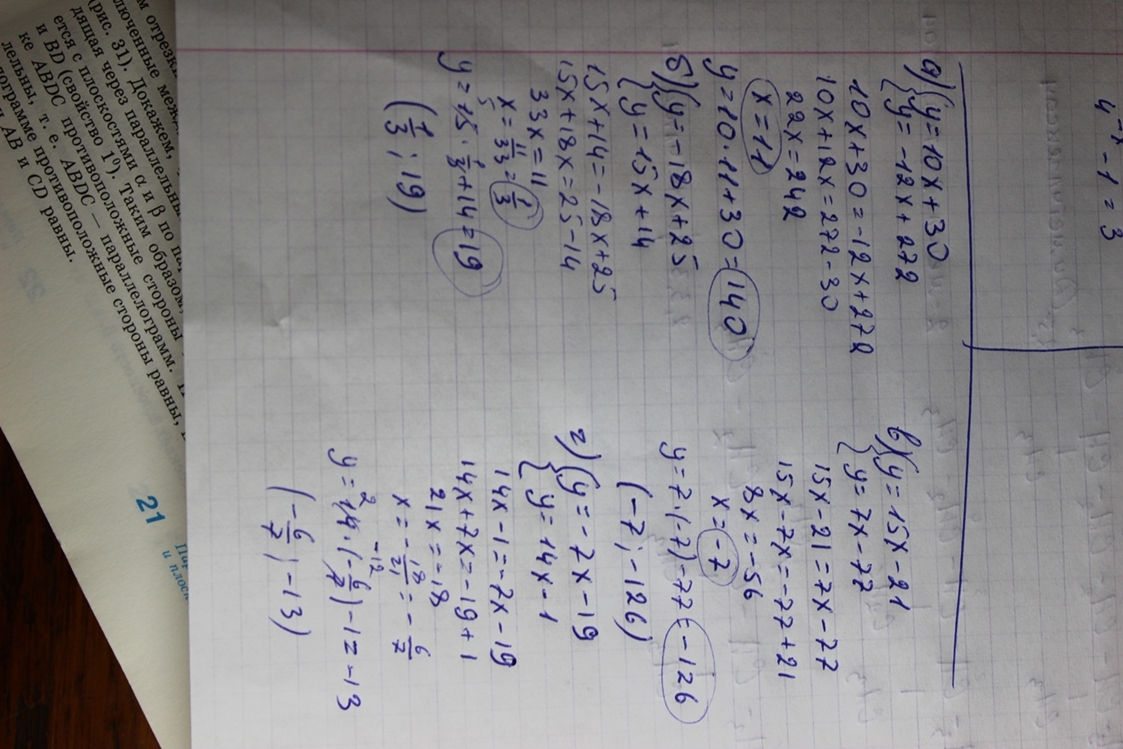 4⁻ˣ - 1 = 3
а) { y = 10x + 30
{ y = -12x + 272
10x + 30 = -12x + 272
10x + 12x = 272 - 30
22x = 242
x = 11
y = 10 · 11 + 30 = 140
б) { y = -18x + 25
{ y = 15x + 14
15x + 14 = -18x + 25
15x + 18x = 25 - 14
33x = 11
x = 11/33 = 1/3
y = 15 · 1/3 + 14 = 19
(1/3 ; 19)
в) { y = 15x - 21
{ y = 7x - 77
15x - 21 = 7x - 77
15x - 7x = -77 + 21
8x = -56
x = -7
y = 7 · (-7) - 77 = -126
(-7; -126)
г) { y = -7x - 19
{ y = 14x - 1
14x - 1 = -7x - 19
14x + 7x = -19 + 1
21x = -18
x = -18/21 = -6/7
y = 14 · (-6/7) - 1 = -13
(-6/7 ; -13)
м отрезки
люченные меж
(рис. 31). Докажем,
дящая через параллельны
ется с плоскостями α и β по пар
и BD (свойство 1⁰). Таким образом,
ке ABDC противоположные стороны
лельны, т. е. ABDC — параллелограмм.
лограмме противоположные стороны равны,
и AB и CD равны.
21
и плоск